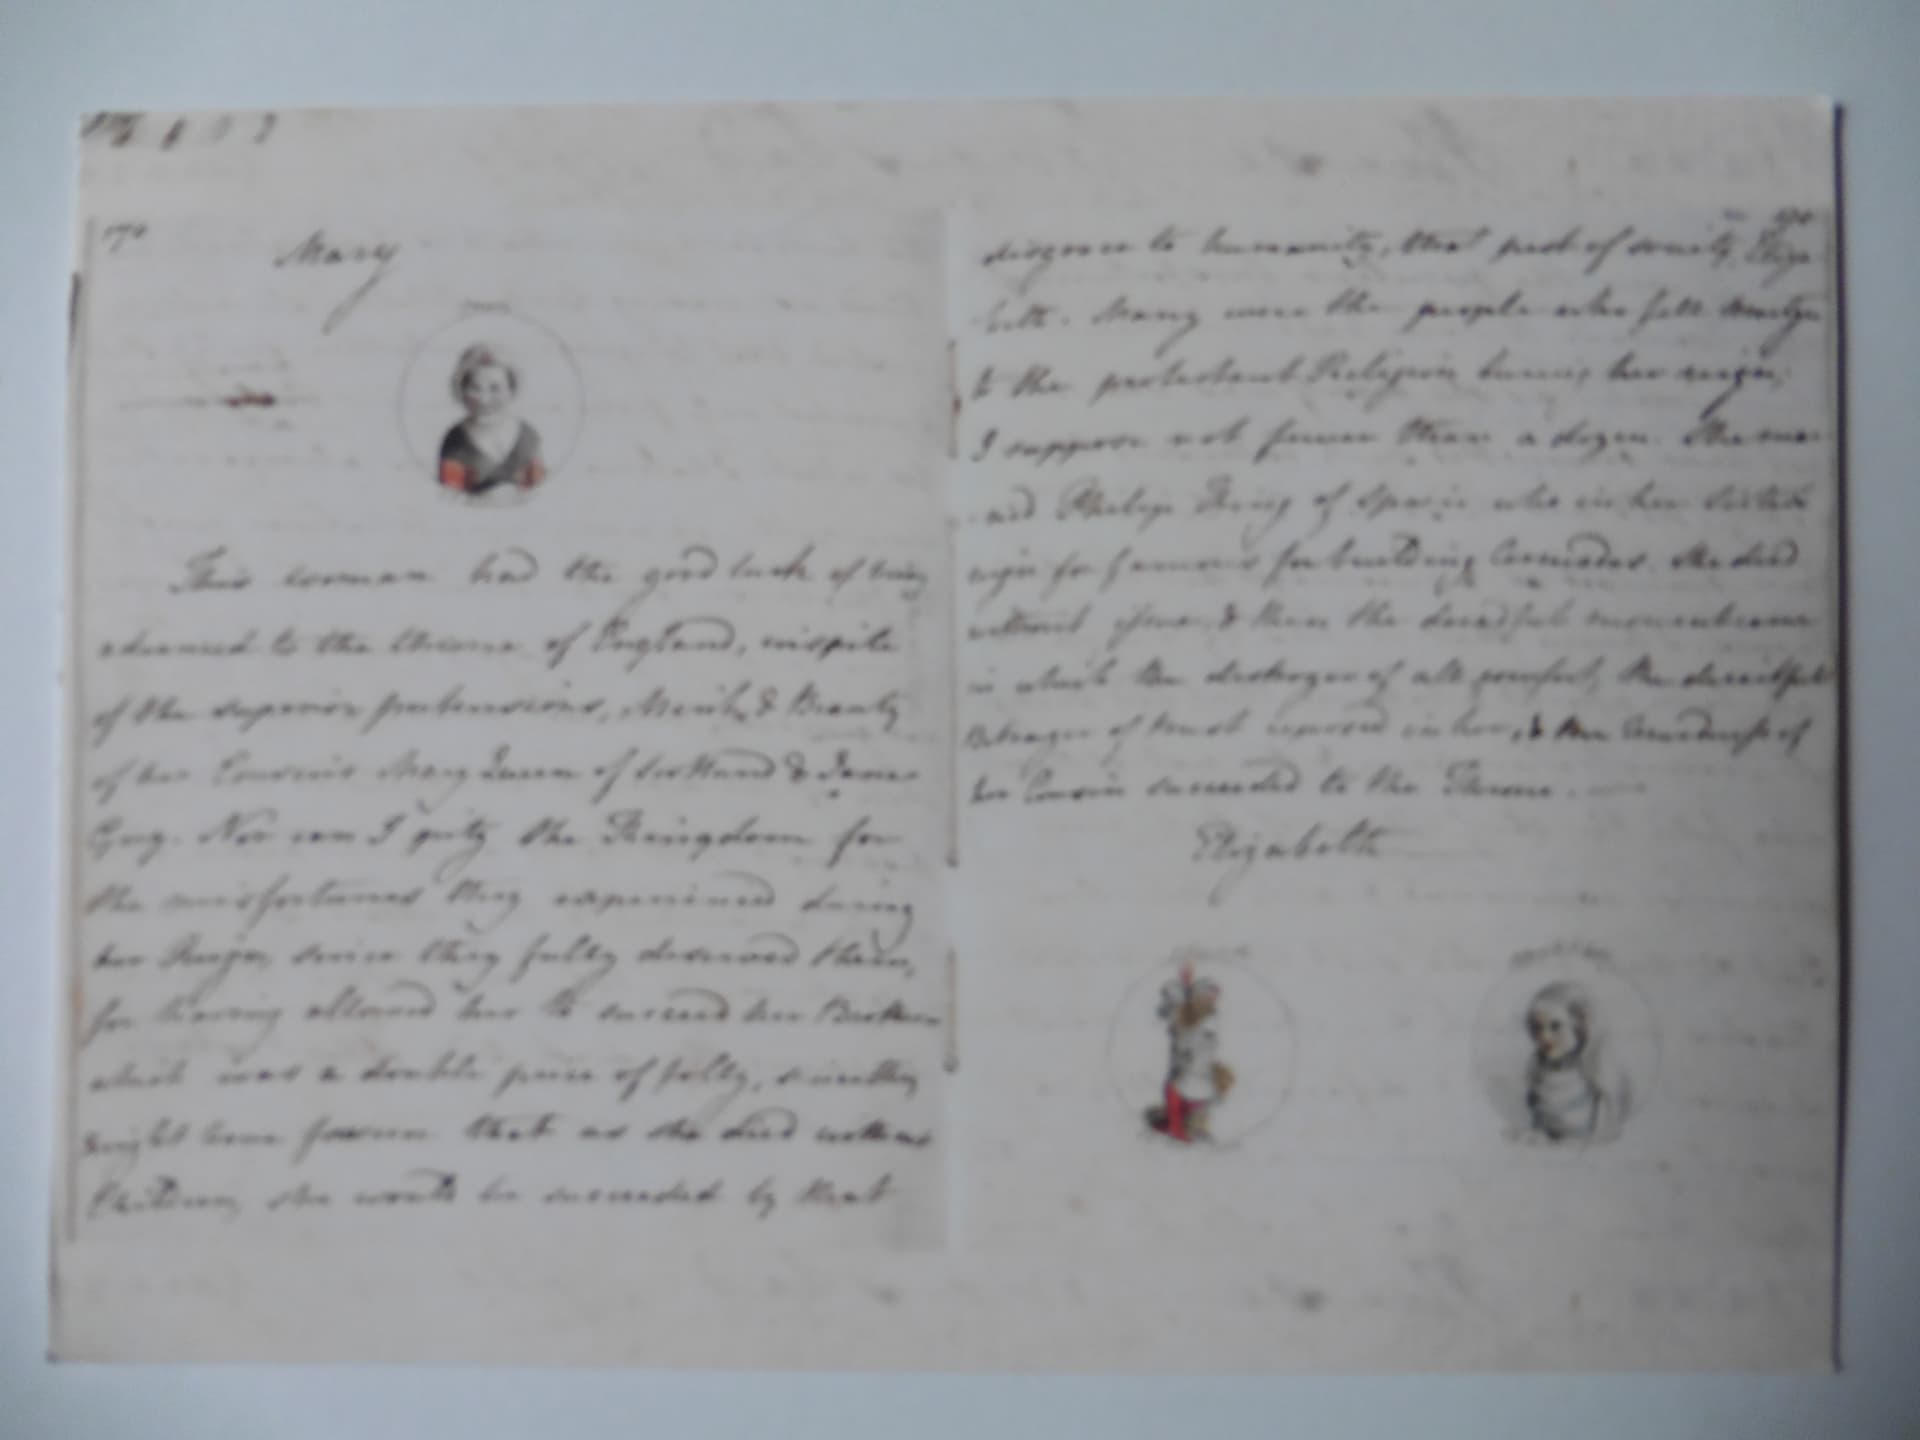 Mary
This woman had the good luck of being
advanced to the throne of England, inspite
of the superior pretensions, Merit, & Beauty
of her Cousins Mary Queen of Scotland & Jane
Grey. Nor can I pity the Kingdom for
the misfortunes they experienced during
her Reign, since they fully deserved them,
for having allowed her to succeed her Brother
which was a double peice of folly, since they
might have foreseen that as she died without
Children, she would be succeeded by that
disgrace to humanity, that pest of society, Eliza-
-beth. Many were the people who fell Martyrs
to the protestant Religion during her reign;
I suppose not fewer than a dozen. She mar-
-ried Philip King of Spain who in her Sister's
reign for famous for building Armadas. She died
without issue, & then the dreadful moment came
in which the destroyer of all comfort, the deceitful
Betrayer of trust reposed in her, & the Murderess of
her Cousin succeeded to the Throne.
Elizabeth